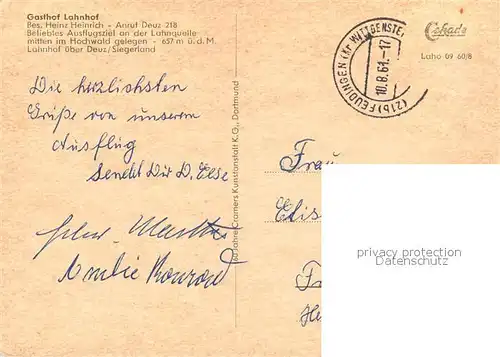 Gasthof Lahnhof
Bes. Heinz Heinrich - Anruf Deuz 218
Beliebtes Ausflugsziel an der Lahnquelle
mitten im Hochwald gelegen - 657 m ü. d. M.
Lahnhof über Deuz/Siegerland
Cekade
Laho 09 60/8
(21b) FEUDINGEN (Kr WITTGENSTE
10.8.61.-17
Die herzlichsten
Grüße von unserem
Ausflug
sendet Dir D. Else
Amélie Konrad
Jahre Cramers Kunstanstalt K.G., Dortmund
Frau
Elis
Fr
privacy protection
Datenschutz